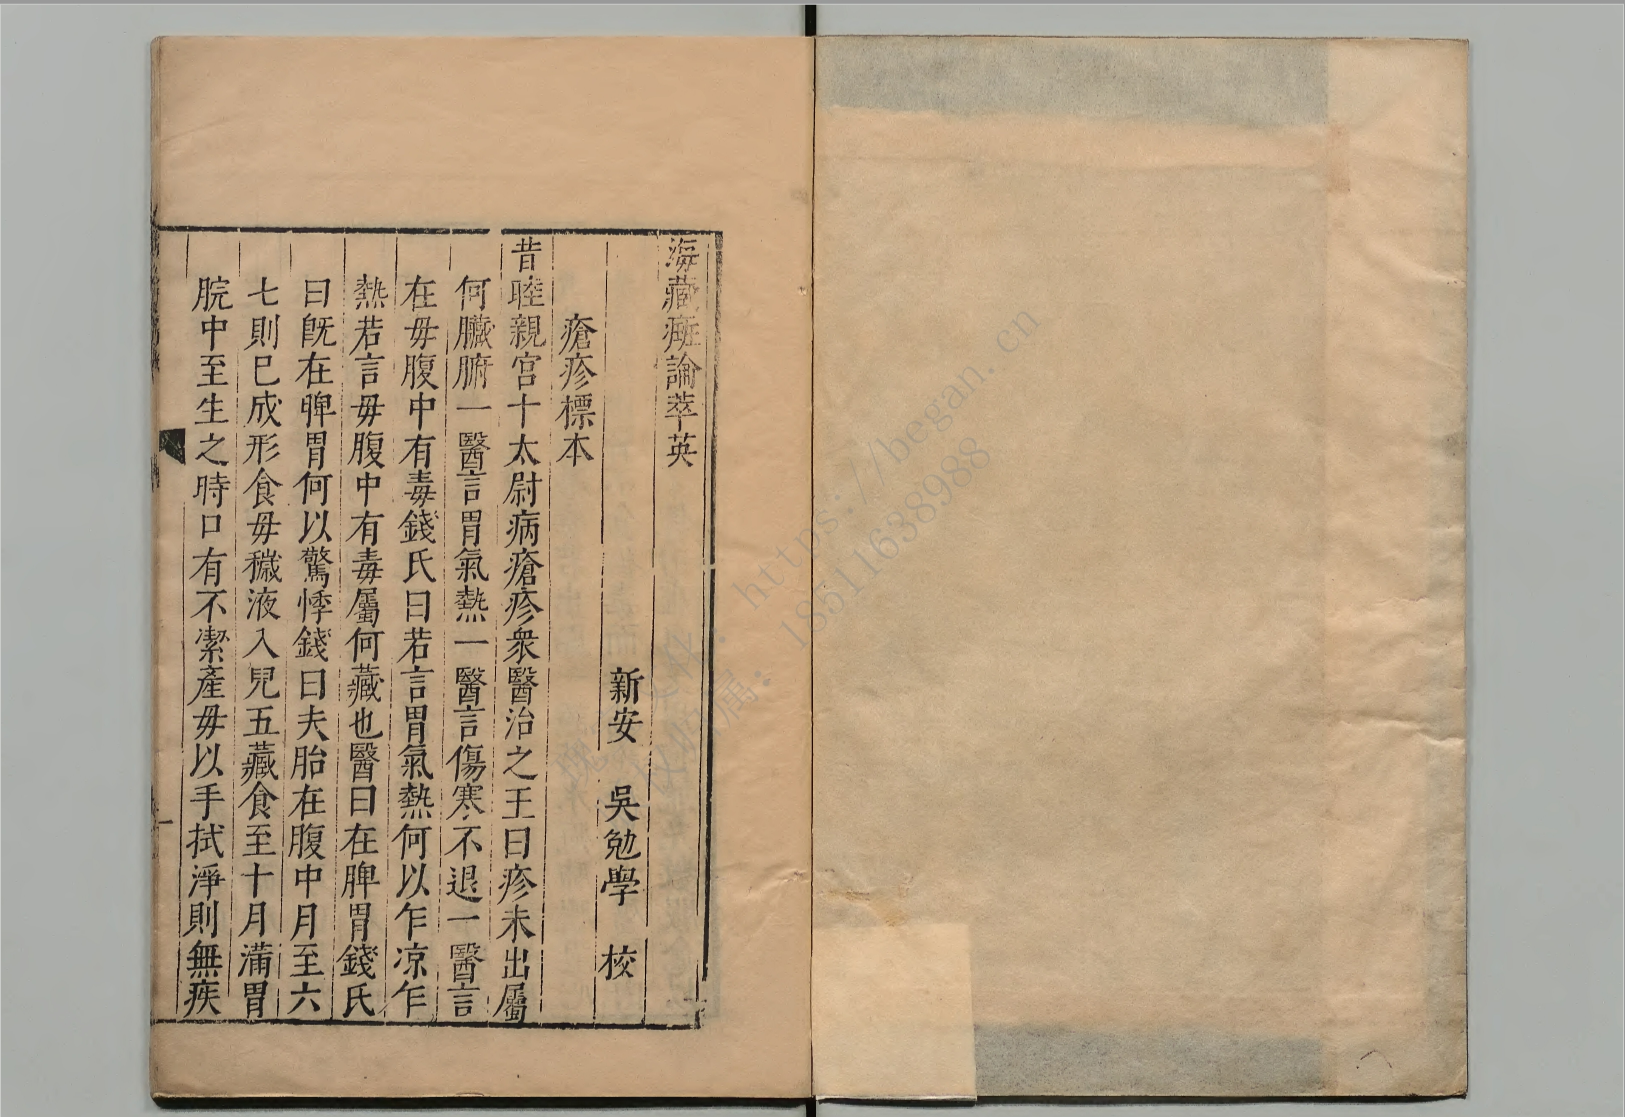 海藏癍論萃英
新安 吳勉學 校
瘡疹標本
昔睦親宮十太尉病瘡疹衆醫治之王曰疹未出屬
何臟腑一醫言胃氣熱一醫言傷寒不退一醫言
在毋腹中有毒錢氏曰若言胃氣熱何以乍凉乍
熱若言毋腹中有毒屬何藏也醫曰在脾胃錢氏
曰旣在脾胃何以驚悸錢曰夫胎在腹中月至六
七則巳成形食毋穢液入兒五藏食至十月滿胃
脘中至生之時口有不潔產毋以手拭淨則無疾
一
https://began.cn
18511638988